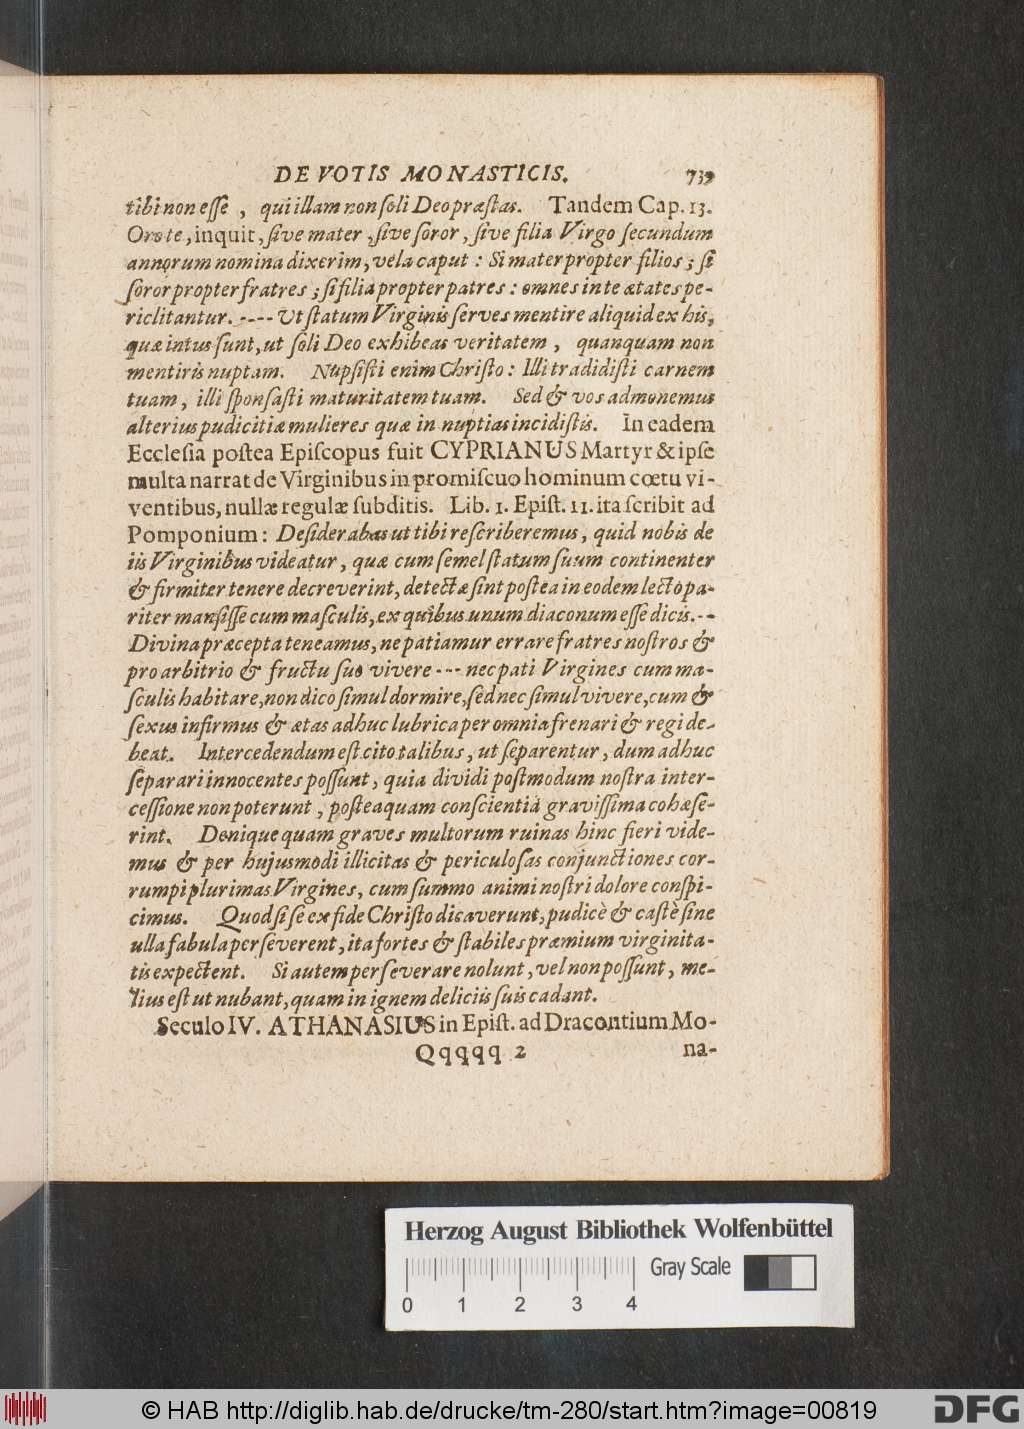 DE VOTIS MONASTICIS. 739
tibi non esse, qui illam non soli Deo præstas. Tandem Cap. 13.
Oro te, inquit, sive mater, sive soror, sive filia Virgo secundum
annorum nomina dixerim, vela caput: Si mater propter filios; si
soror propter fratres; si filia propter patres: omnes in te ætates pe-
riclitantur. ---- Ut statum Virginis serves mentire aliquid ex his,
quæ intus sunt, ut soli Deo exhibeas veritatem, quanquam non
mentiris nuptam. Nupsisti enim Christo: Illi tradidisti carnem
tuam, illi sponsasti maturitatem tuam. Sed & vos admonemus
alterius pudicitiæ mulieres quæ in nuptias incidistis. In eadem
Ecclesia postea Episcopus fuit CYPRIANUS Martyr & ipse
multa narrat de Virginibus in promiscuo hominum cœtu vi-
ventibus, nullæ regulæ subditis. Lib. 1. Epist. 11. ita scribit ad
Pomponium: Desiderabas ut tibi rescriberemus, quid nobis de
iis Virginibus videatur, quæ cum semel statum suum continenter
& firmiter tenere decreverint, detectæ sint postea in eodem lecto pa-
riter mansisse cum masculis, ex quibus unum diaconum esse dicis. --
Divina præcepta teneamus, ne patiamur errare fratres nostros &
pro arbitrio & fructu suo vivere --- nec pati Virgines cum ma-
sculis habitare, non dico simul dormire, sed nec simul vivere, cum &
sexus infirmus & ætas adhuc lubrica per omnia frenari & regi de-
beat. Intercedendum est cito talibus, ut separentur, dum adhuc
separari innocentes possunt, quia dividi postmodum nostra inter-
cessione non poterunt, posteaquam conscientia gravissima cohæse-
rint. Denique quam graves multorum ruinas hinc fieri vide-
mus & per hujusmodi illicitas & periculosas conjunctiones cor-
rumpi plurimas Virgines, cum summo animi nostri dolore conspi-
cimus. Quod si se ex fide Christo dicaverunt, pudicè & castè sine
ulla fabula perseverent, ita fortes & stabiles præmium virginita-
tis expectent. Si autem perseverare nolunt, vel non possunt, me-
lius est ut nubant, quam in ignem deliciis suis cadant.
Seculo IV. ATHANASIUS in Epist. ad Dracontium Mo-
Qqqqq 2 na-
Herzog August Bibliothek Wolfenbüttel
Gray Scale
0 1 2 3 4
© HAB http://diglib.hab.de/drucke/tm-280/start.htm?image=00819
DFG